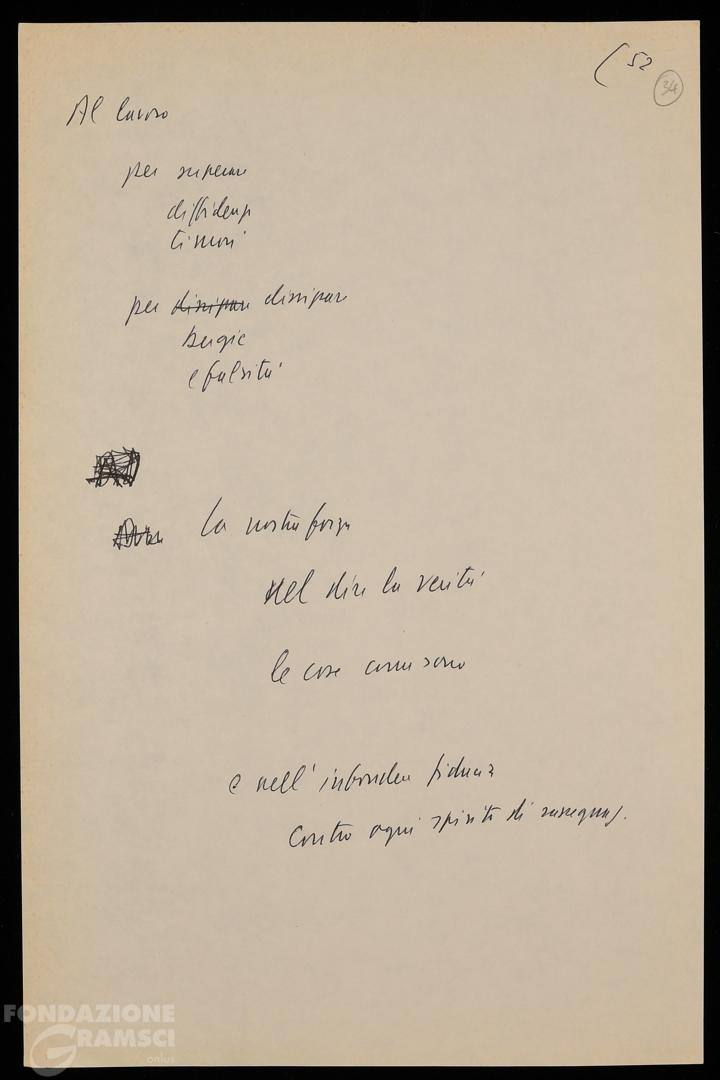 (52
34
Al lavoro
per superare
diffidenze
timori
per dissipare dissipare
bugie
e falsità
La nostra forza
Nel dire la verità
le cose come sono
e nell'infondere fiducia
Contro ogni spirito di rassegnaz.
FONDAZIONE
GRAMSCI
onlus